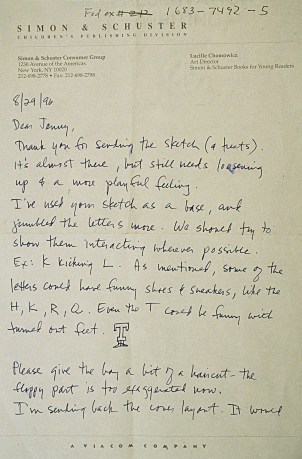 Fed ex # 1683-7492-5
SIMON & SCHUSTER
CHILDREN'S PUBLISHING DIVISION
Simon & Schuster Consumer Group
1230 Avenue of the Americas
New York, NY 10020
212-698-2778 • Fax: 212-698-2798
Lucille Chomowicz
Art Director
Simon & Schuster Books for Young Readers
8/29/96
Dear Jenny,
Thank you for sending the sketch (& treats).
It's almost there, but still needs loosening
up & a more playful feeling.
I've used your sketch as a base, and
jumbled the letters more. We should try to
show them interacting wherever possible.
Ex: K kicking L. As mentioned, some of the
letters could have funny shoes & sneakers, like the
H, K, R, Q. Even the T could be funny with
turned out feet. T
Please give the boy a bit of a haircut - the
floppy part is too exaggerated now.
I'm sending back the cover layout. It would
A VIACOM COMPANY